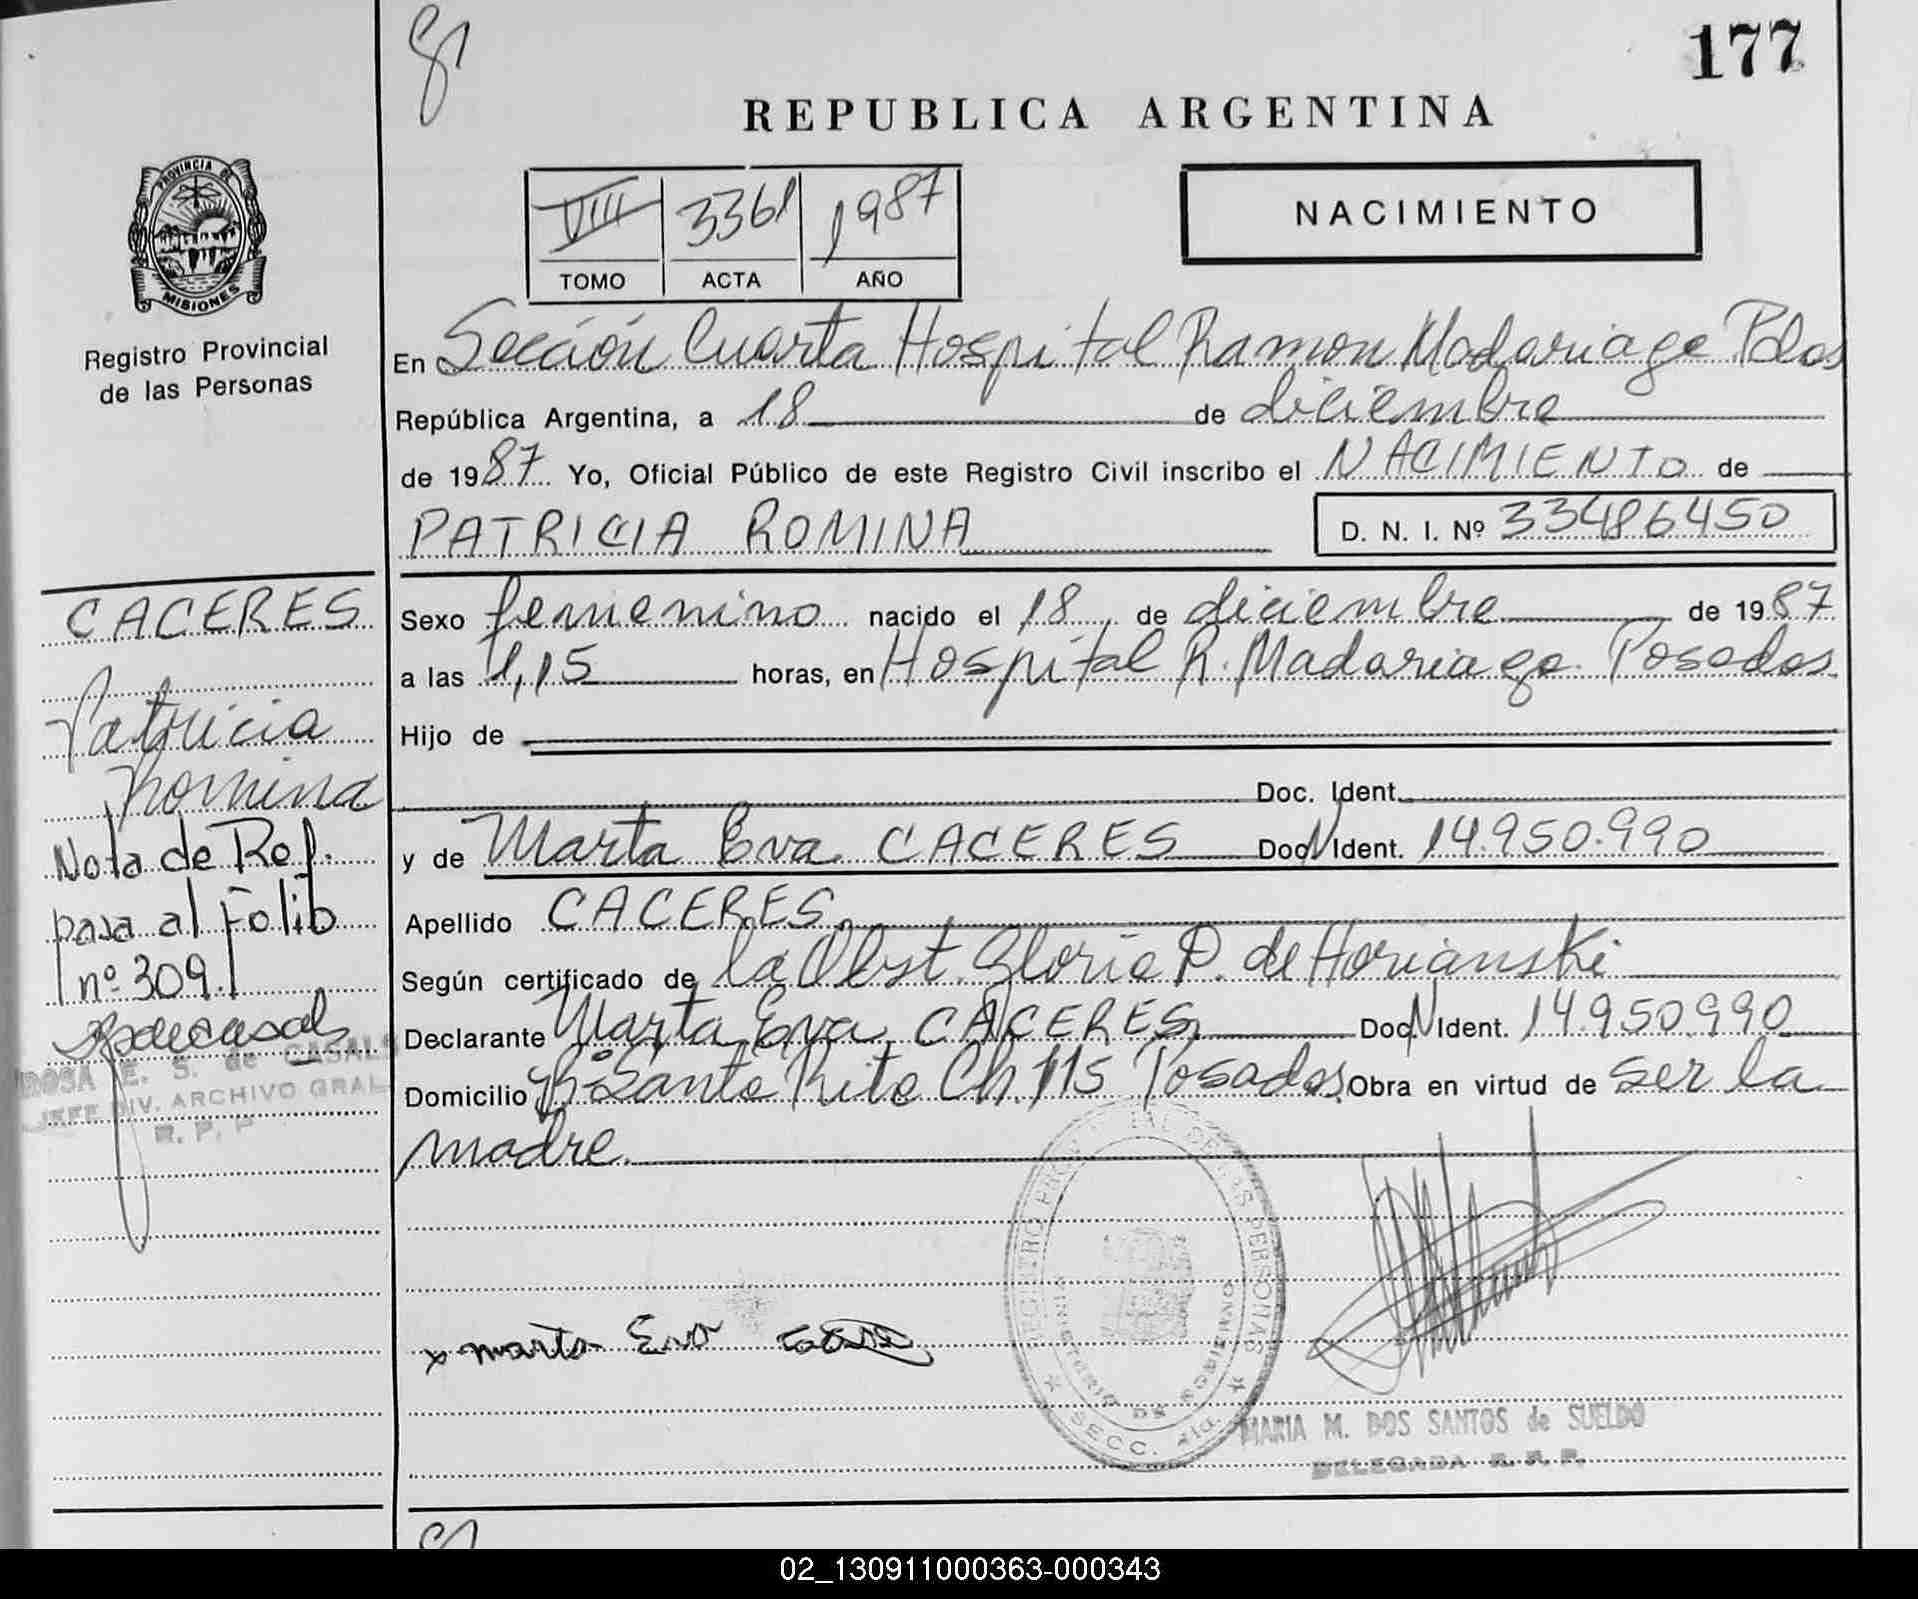 177
REPUBLICA ARGENTINA
PROVINCIA DE
MISIONES
Registro Provincial
de las Personas
VIII 3361 1987
TOMO ACTA AÑO
NACIMIENTO
En Sección Cuarta Hospital Ramon Madariaga Pdas
República Argentina, a 18 de diciembre
de 1987. Yo, Oficial Público de este Registro Civil inscribo el NACIMIENTO de
PATRICIA ROMINA D. N. I. Nº 33486450
Sexo femenino nacido el 18 de diciembre de 1987
a las 1,15 horas, en Hospital R. Madariaga. Posadas
Hijo de
Doc. Ident.
y de Marta Eva CACERES Doc N Ident. 14.950.990
Apellido CACERES.
Según certificado de la Obst. Gloria P. de Horianski
Declarante Marta Eva CACERES Doc. N Ident. 14.950.990
Domicilio Bº Santa Rita Ch. 115 Posadas Obra en virtud de ser la
madre.
CACERES
Patricia
Romina
Nota de Ref.
pasa al Folio
nº 309.
ROSA E. S. de CASALS
JEFE DIV. ARCHIVO GRAL
R. P. P
x Marta Eva
REGISTRO PROVINCIAL DE LAS PERSONAS
MINISTERIO DE GOBIERNO
SECC. 4ta
MARIA M. DOS SANTOS de SUELDO
DELEGADA R. P. P.
02_130911000363-000343